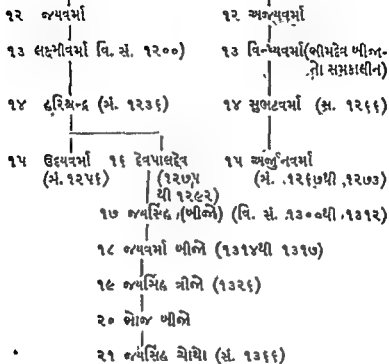 ૧૨ જયવર્મા ૧૨ અજયવર્મા
૧૩ લક્ષ્મીવર્મા વિ. સં. ૧૨૦૦) ૧૩ વિન્ધ્યવર્મા(ભીમદેવ બીજા-
નો સમકાલીન)
૧૪ હરિશ્ચન્દ્ર (સં. ૧૨૩૬) ૧૪ સુભટવર્મા (સ. ૧૨૬૬)
૧૫ ઉદયવર્મા ૧૬ દેવપાલદેવ ૧૫ અર્જુનવર્મા
(સં. ૧૨૫૬) (૧૨૭૫ (સં. ૧૨૬૭થી ૧૨૭૩)
થી ૧૨૯૨)
૧૭ જયસિંહ (બીજો) (વિ. સં. ૧૩૦૦થી ૧૩૧૨)
૧૮ જયવર્મા બીજો (૧૩૧૪થી ૧૩૧૭)
૧૯ જયસિંહ ત્રીજો (૧૩૨૬)
૨૦ ભોજ બીજો
૨૧ જયસિંહ ચોથો (સં. ૧૩૬૬)